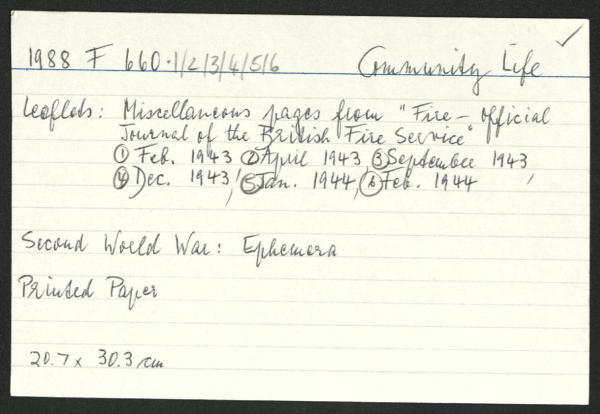 1988 F 660·1/2/3/4/5/6 Community Life ✓
Leaflets: Miscellaneous pages from "Fire – official
Journal of the British Fire Service"
① Feb. 1943 ② April 1943, ③ September 1943,
④ Dec. 1943, ⑤ Jan. 1944, ⑥ Feb. 1944
Second World War: Ephemera
Printed Paper
20.7 x 30.3 cm